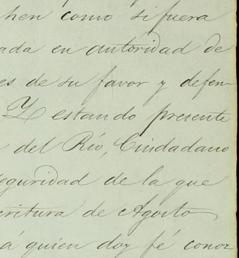 hen como si fuera
ada en autoridad de
es de su favor y defen
Y estando presente
del Rio, Ciudadano
seguridad de la que
critura de Agosto
á quien doy fé conoz